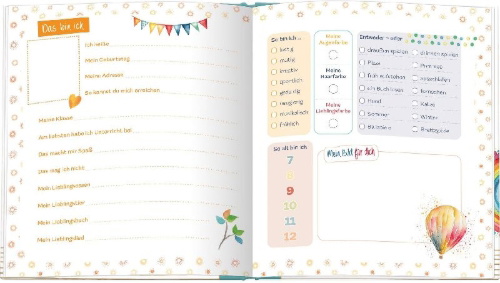 Das bin ich
Ich heiße
Mein Geburtstag
Meine Adresse
So kannst du mich erreichen
Meine Klasse
Am liebsten habe ich Unterricht bei
Das macht mir Spaß
Das mag ich nicht
Mein Lieblingsessen
Mein Lieblingstier
Mein Lieblingsbuch
Mein Lieblingslied
So bin ich ...
lustig
mutig
kreativ
sportlich
geduldig
neugierig
musikalisch
fröhlich
Meine
Augenfarbe
Meine
Haarfarbe
Meine
Lieblingsfarbe
Entweder – oder
draußen spielen
drinnen spielen
Pizza
Pommes
früh aufstehen
ausschlafen
ein Buch lesen
fernsehen
Hund
Katze
Sommer
Winter
So alt bin ich
7
8
9
10
11
12
Mein Bild für dich